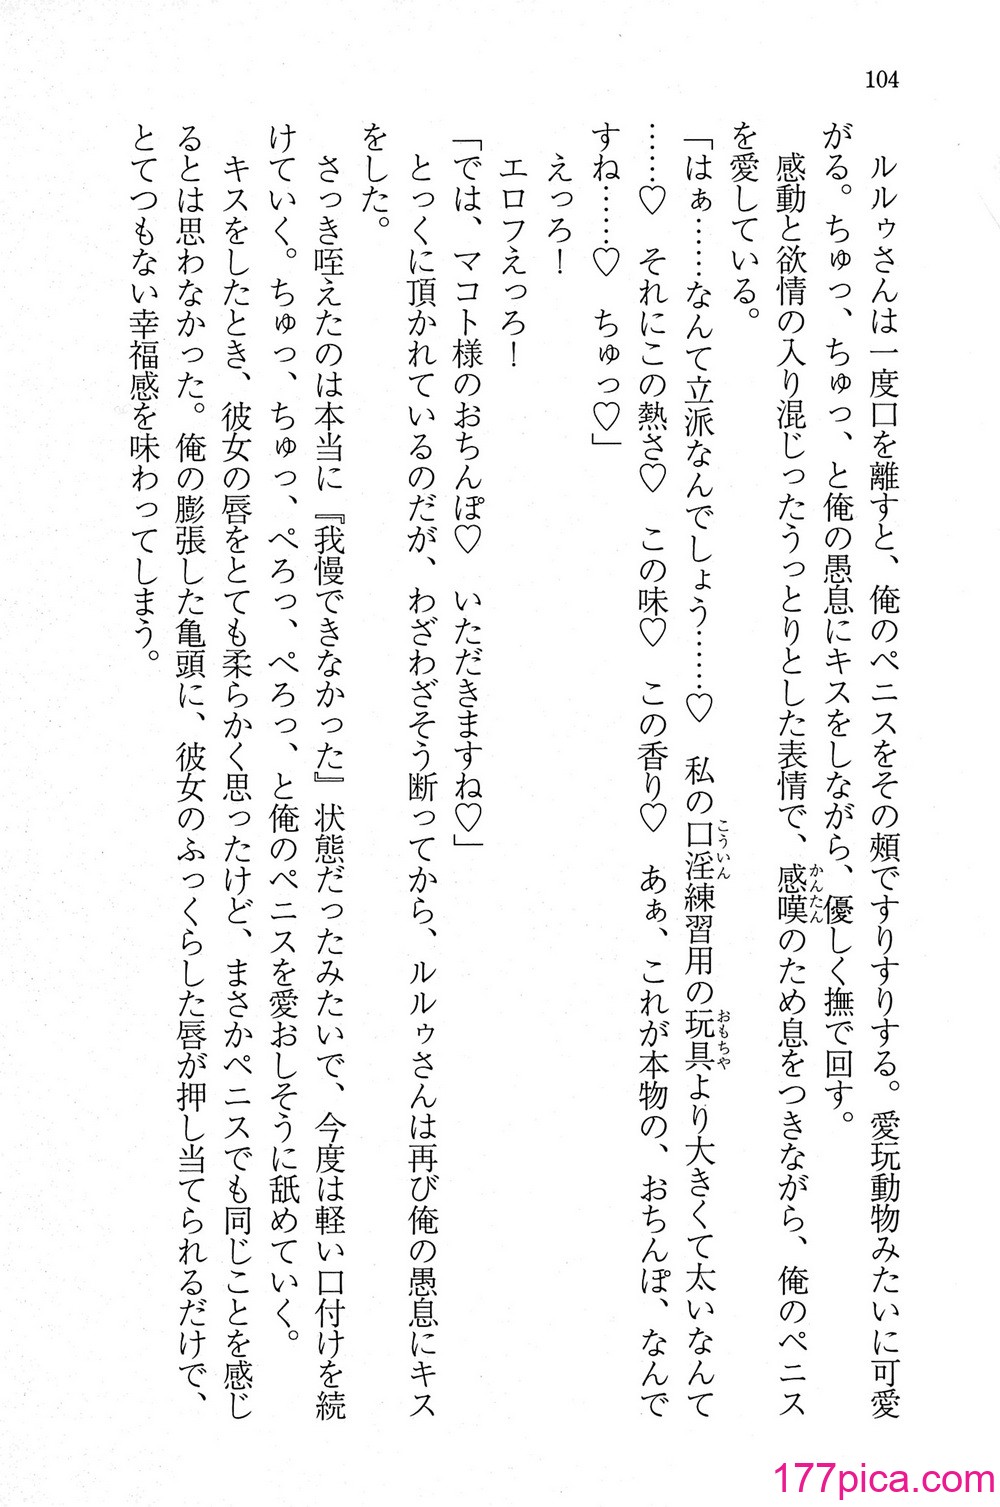 104
ルルゥさんは一度口を離すと、俺のペニスをその頬ですりすりする。愛玩動物みたいに可愛
がる。ちゅっ、ちゅっ、と俺の愚息にキスをしながら、優しく撫で回す。
感動と欲情の入り混じったうっとりとした表情で、感嘆のため息をつきながら、俺のペニス
かんたん
を愛している。
「はぁ……なんて立派なんでしょう……♡　私の口淫練習用の玩具より大きくて太いなんて
こういん
おもちゃ
……♡　それにこの熱さ♡　この味♡　この香り♡　あぁ、これが本物の、おちんぽ、なんで
すね……♡　ちゅっ♡」
えっろ！
エロフえっろ！
「では、マコト様のおちんぽ♡　いただきますね♡」
とっくに頂かれているのだが、わざわざそう断ってから、ルルゥさんは再び俺の愚息にキス
をした。
さっき咥えたのは本当に『我慢できなかった』状態だったみたいで、今度は軽い口付けを続
けていく。ちゅっ、ちゅっ、ぺろっ、ぺろっ、と俺のペニスを愛おしそうに舐めていく。
キスをしたとき、彼女の唇をとても柔らかく思ったけど、まさかペニスでも同じことを感じ
るとは思わなかった。俺の膨張した亀頭に、彼女のふっくらした唇が押し当てられるだけで、
とてつもない幸福感を味わってしまう。
177pica.com